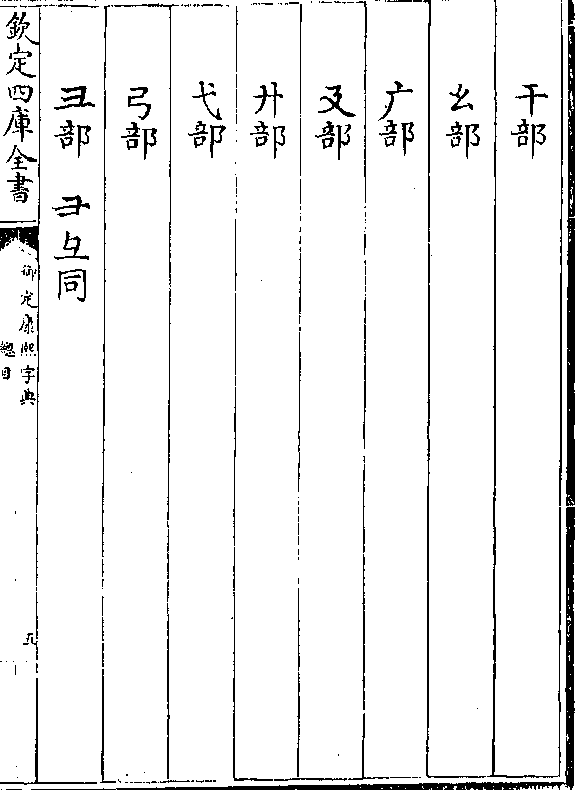 干部
幺部
广部
廴部
廾部
弋部
弓部
彐部 彐彑同
欽定四庫全書
御定康熙字典
總目
五